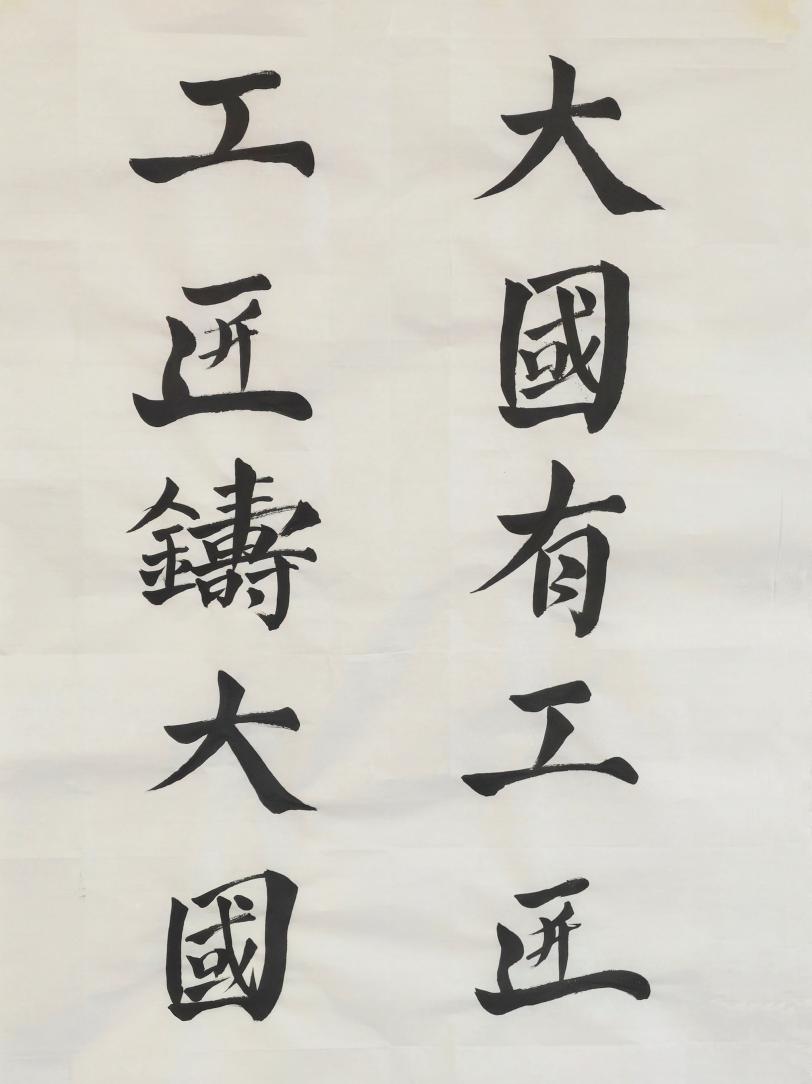 大國有工匠
工匠鑄大國